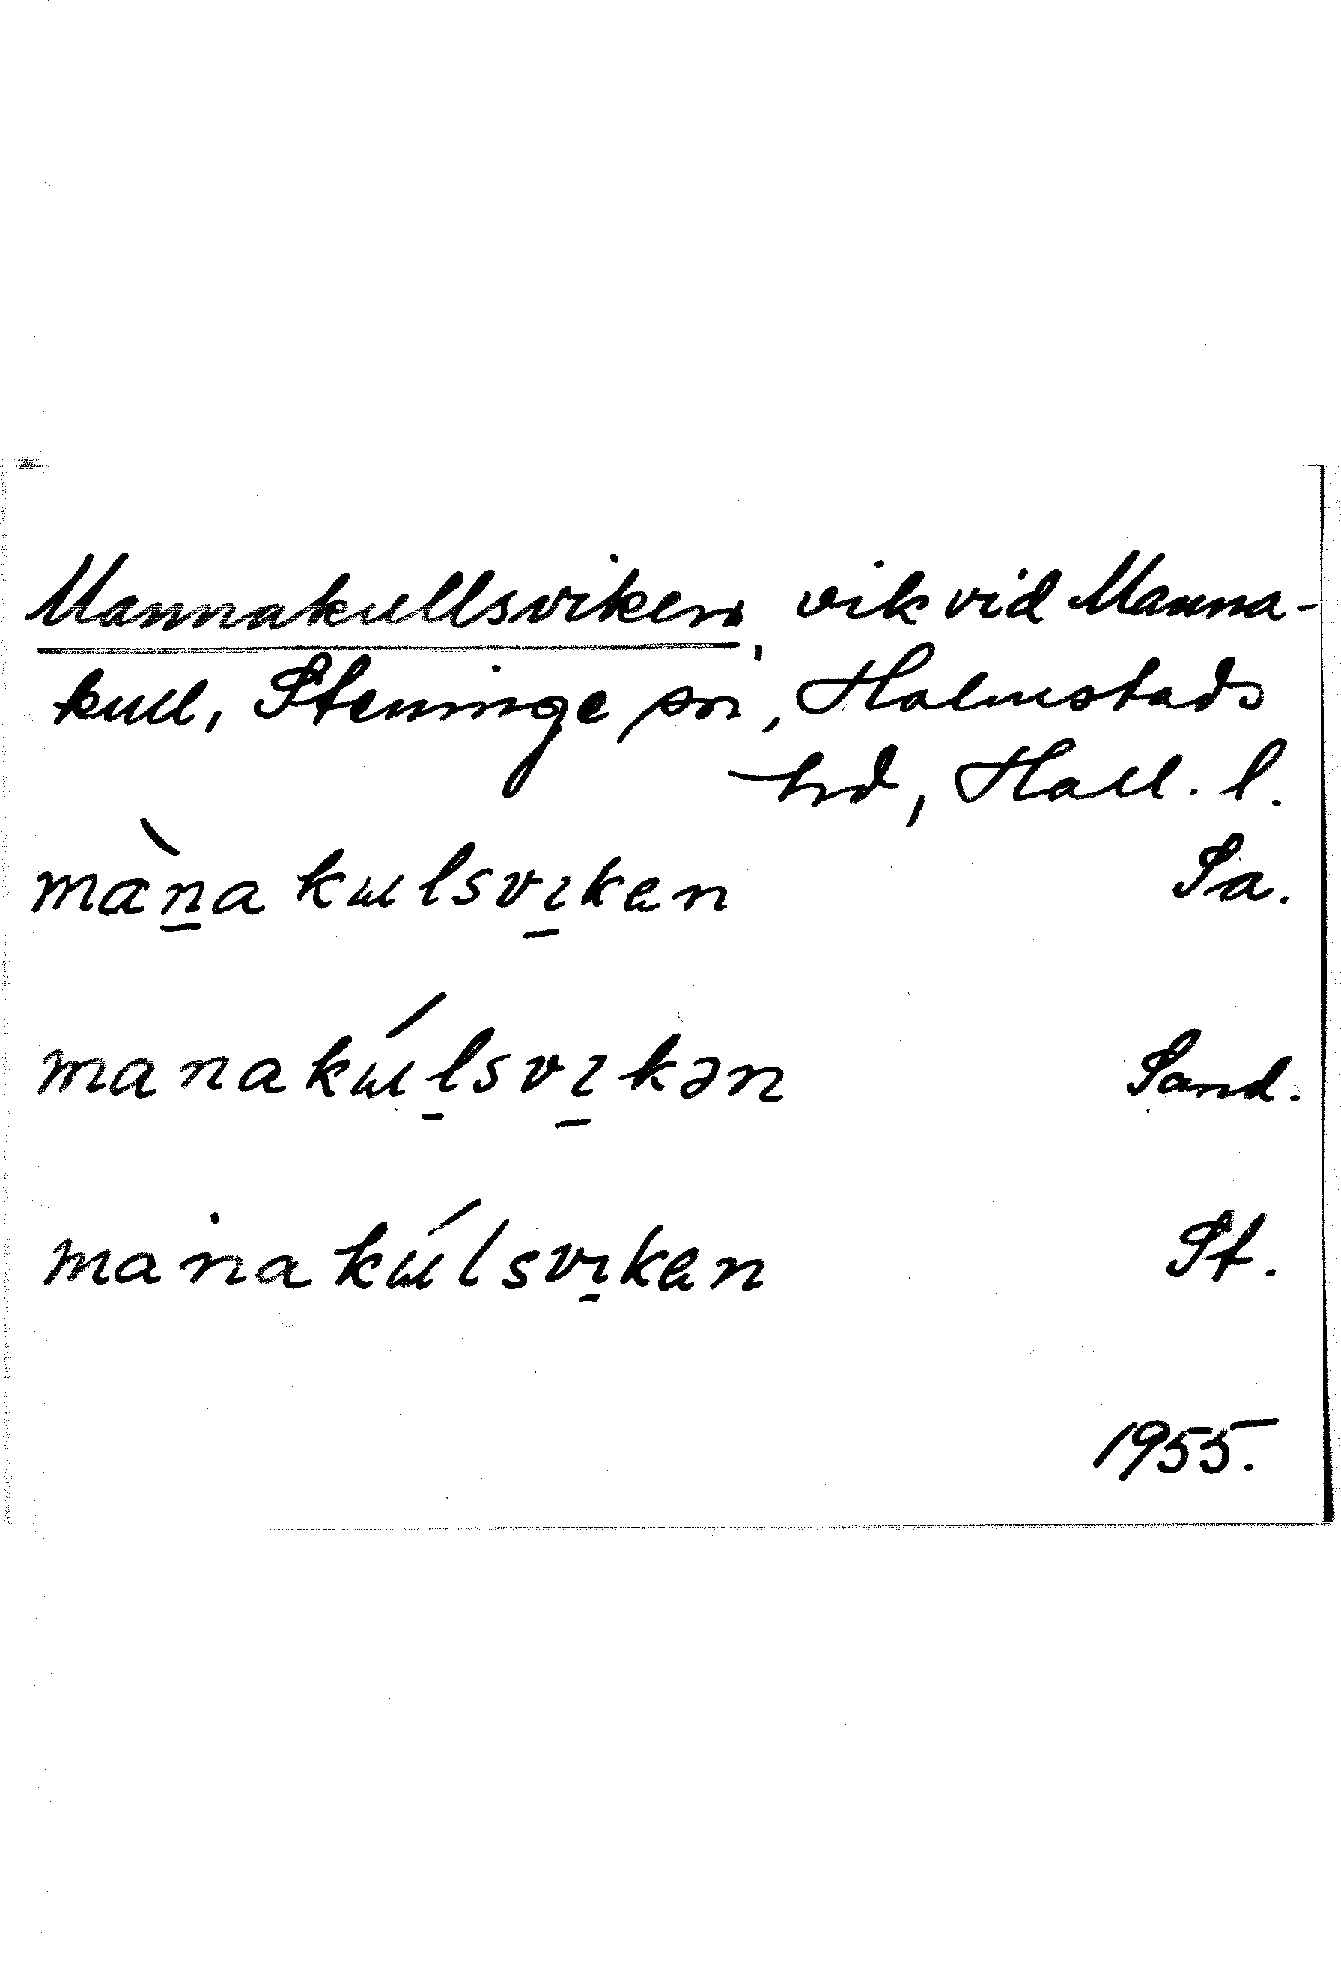 Mannakullsviken, vik vid Manna-
kull, Steninge sn, Holmstads
hd, Hall. l.
màn̲akɯlsvı̲kɐn Sa.
manakɯ́l̲svı̲kən Sand.
maṅakɯ́lsvı̲kɐn St.
1955.